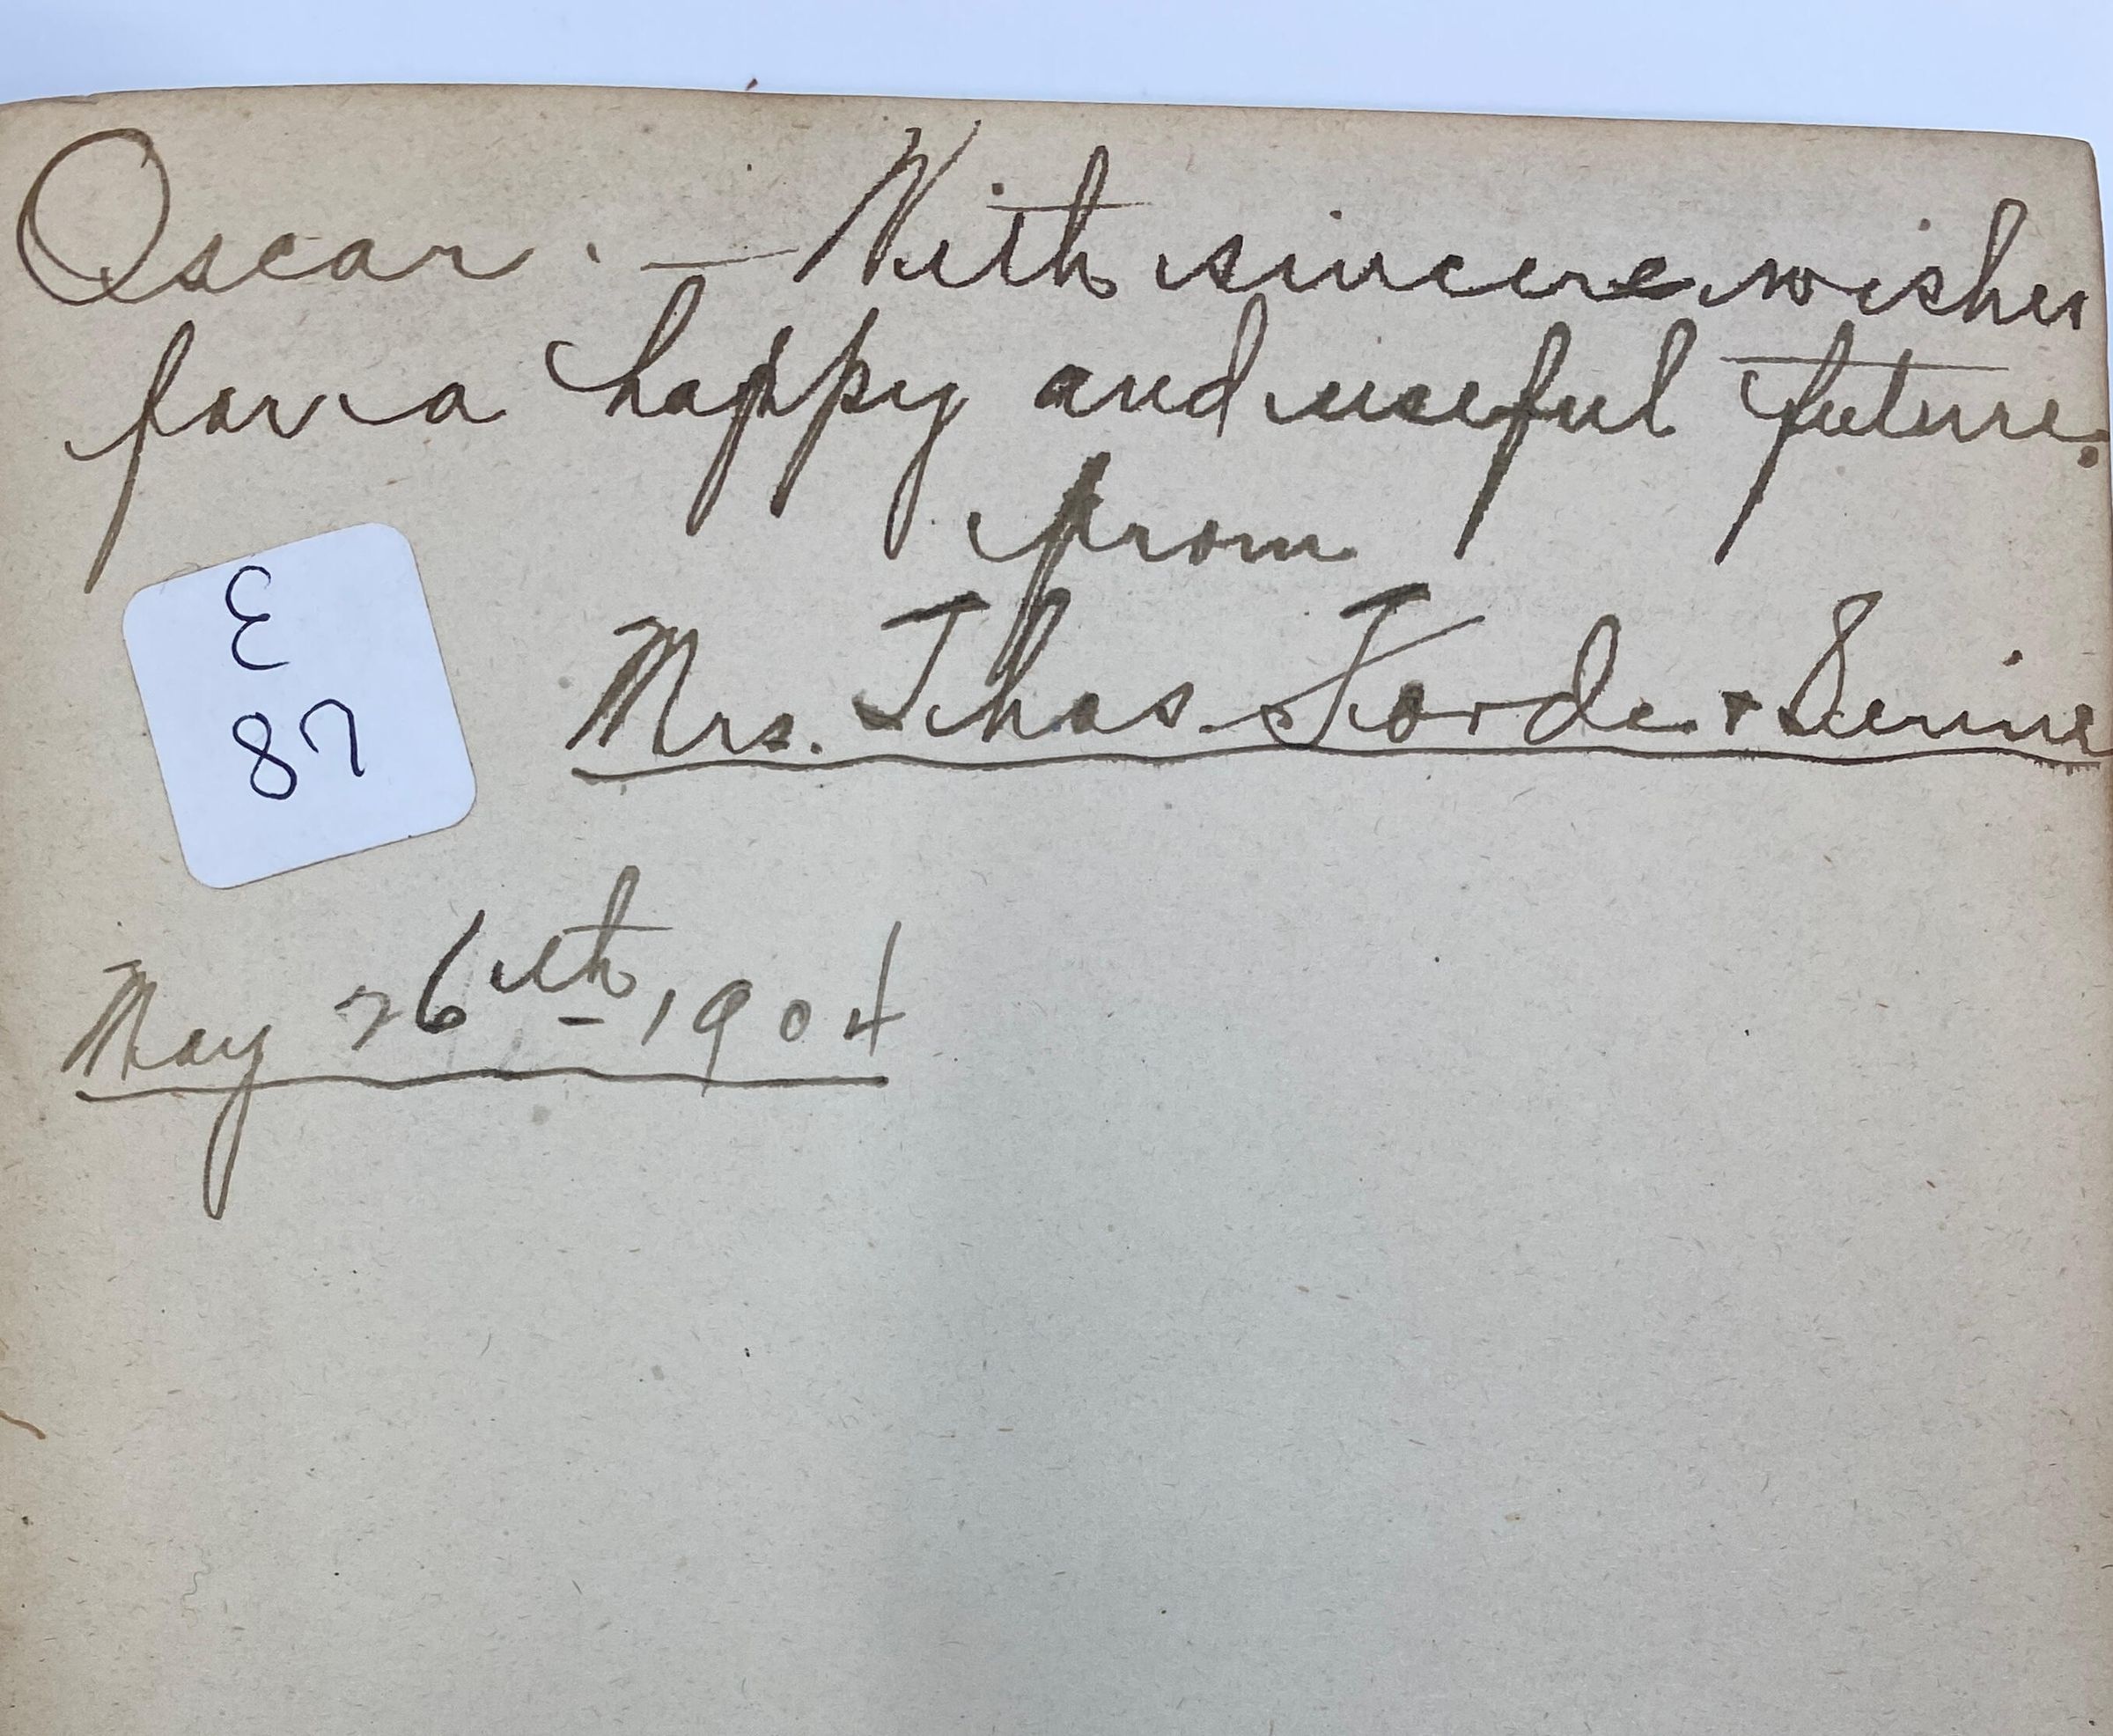 Oscar. — With sincere wishes
for a happy and useful future.
from
Mrs. Thos. Forde. & Serine
May 26th, 1904
E
87